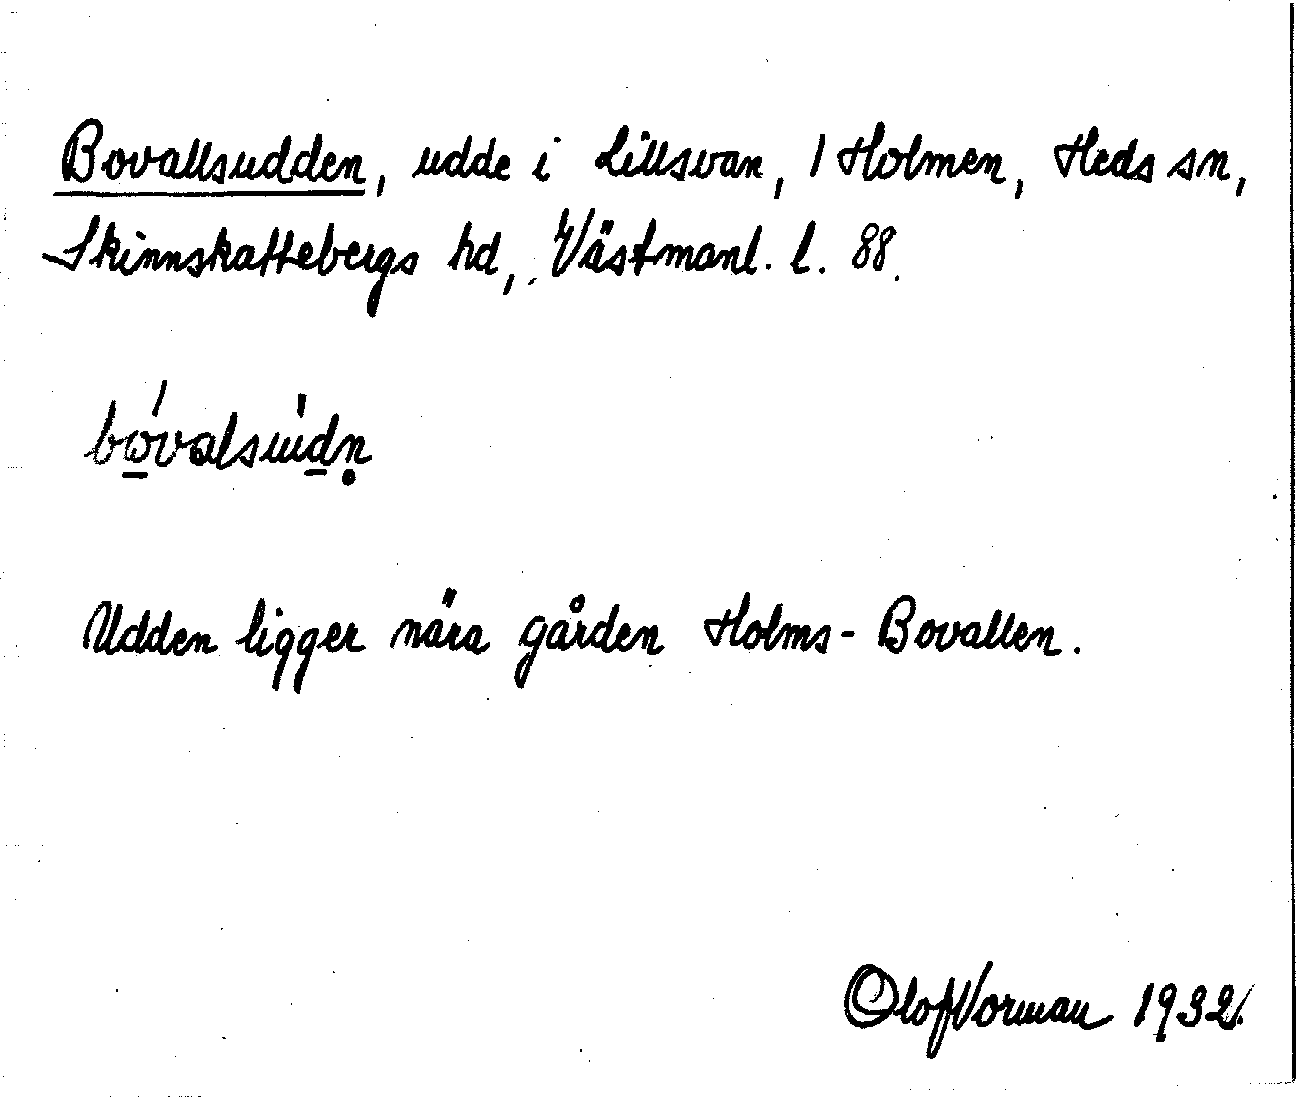 Bovallsudden, udde i Lillsvan, / Holmen, Heds sn,
Skinnskattebergs hd, Västmanl. l. 88.
bo̲valsud̲ṇ
Udden ligger nära gården Holms-Bovallen.
Olof Vorman 1932.